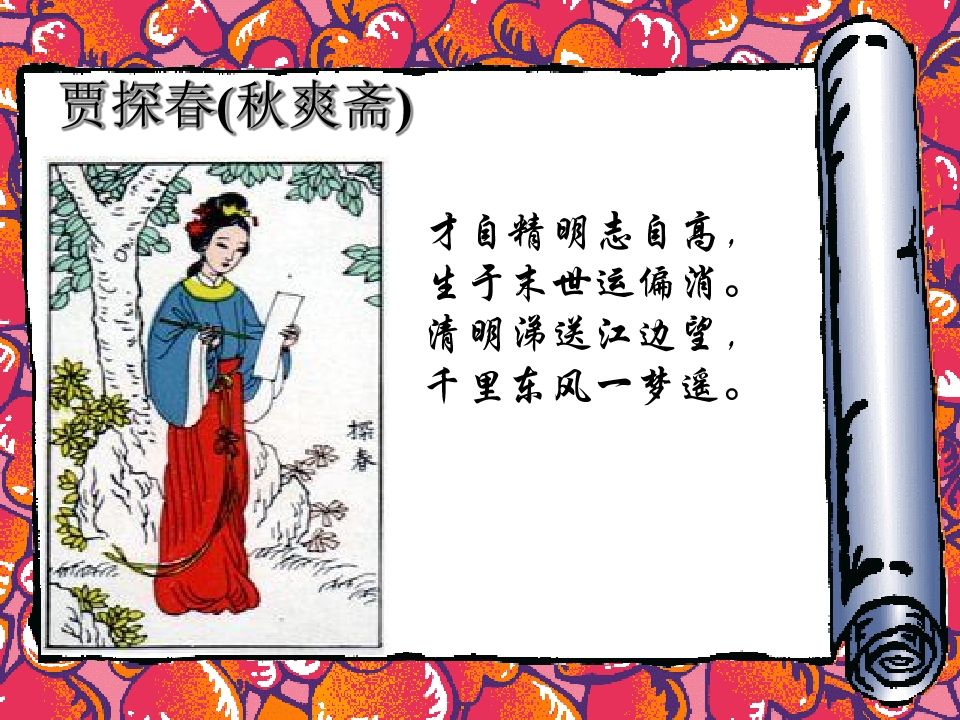 贾探春(秋爽斋)
才自精明志自高，
生于末世运偏消。
清明涕送江边望，
千里东风一梦遥。
探春